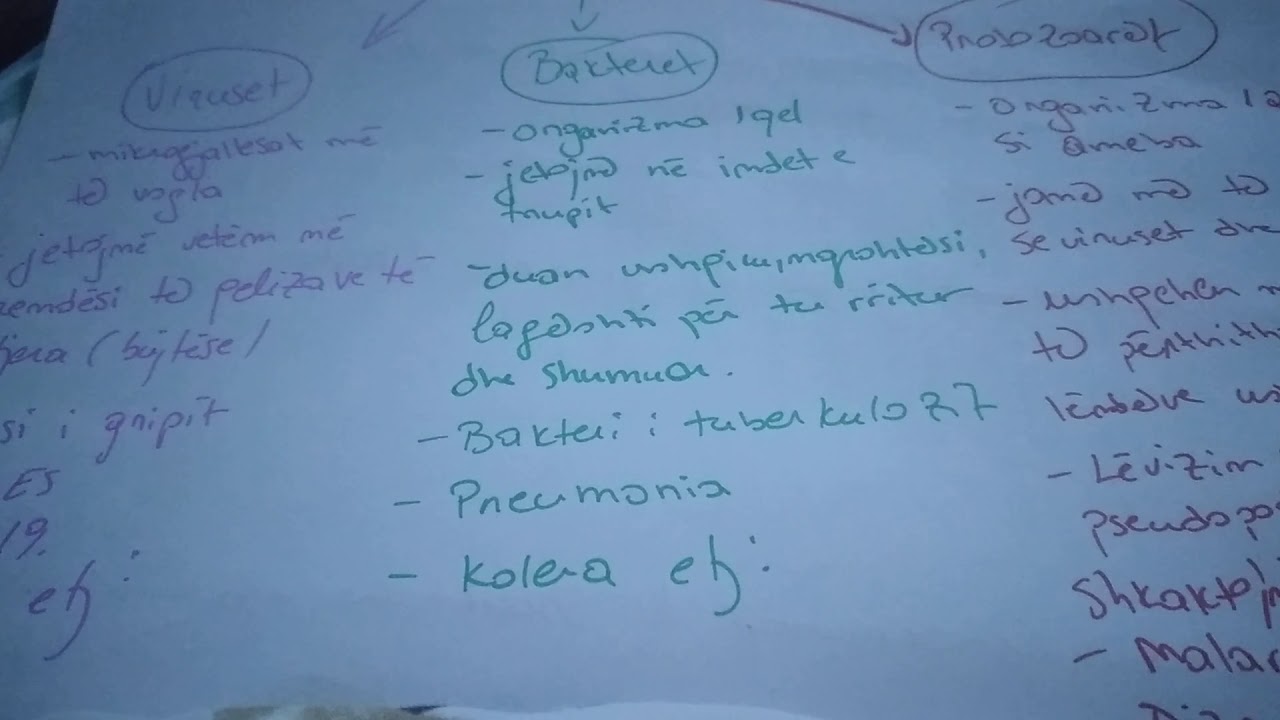 Viruset
- mikrogjallesat më
të vogla
jetojmë vetëm më
të qelizave të
(bujtëse)
si i gripit
ES
19.
etj:
Bakteret
- organizma 1 qel
- jetojnë në indet e
trupit
- duan ushqim, ngrohtësi,
lagështi për tu rritur
dhe shumuar.
- Bakteri i tuberkulozit
- Pneumonia
- Kolera etj:
Protozoarët
- organizma 1
si ameba
- janë më të
se viruset dhe
- ushqehen
të përthith
lëndëve us
- Lëvizim
pseudopo
Shkakto
- Malar